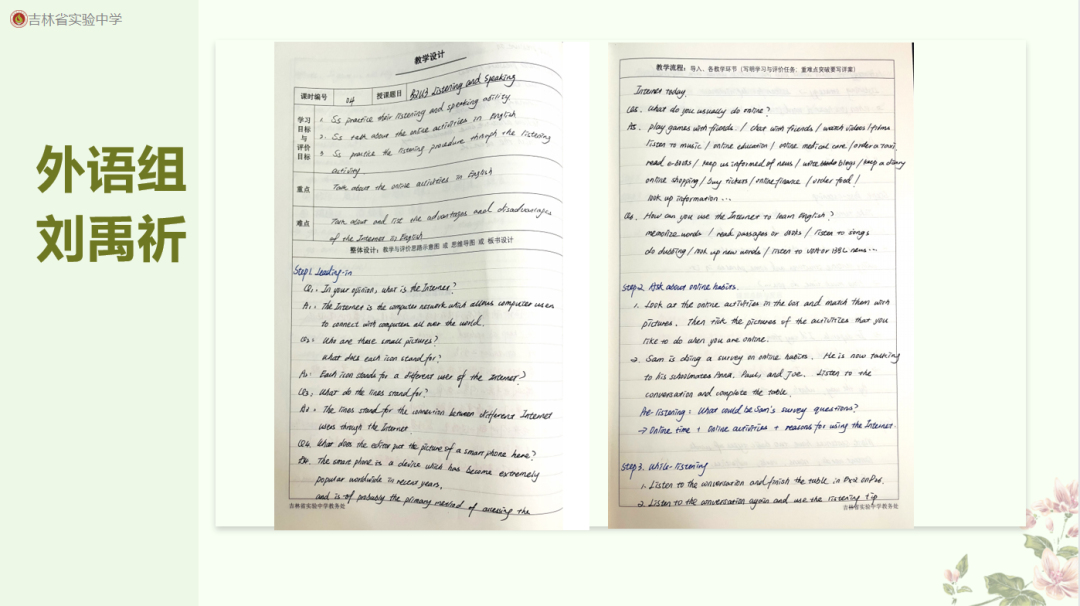 吉林省实验中学
外语组
刘禹祈
教学设计
课时编号 04 授课题目 B2U3 Listening and Speaking
学习目标与评价目标
1. Ss practice their listening and speaking ability.
2. Ss talk about the online activities in English
3. Ss practice the listening procedure through the listening
activity.
重点 Talk about the online activities in English
难点 Talk about and list the advantages and disadvantages
of the Internet in English
整体设计：教学与评价思路示意图 或 思维导图 或 板书设计
Step1. Leading-in
Q1. In your opinion, what is the Internet?
A1: The Internet is the computer network which allows computer users
to connect with computers all over the world.
Q2: Who are these small pictures?
What does each icon stand for?
A2: Each icon stands for a different use of the Internet?
Q3: What do the lines stand for?
A3: The lines stand for the connection between different Internet
users through the Internet
Q4. What does the editor put the picture of a smart phone here?
A4. The smart phone is a device which has become extremely
popular worldwide in recent years,
and is of probably the primary method of accessing the
吉林省实验中学教务处
教学流程：导入、各教学环节（写明学习与评价任务；重难点突破要写详案）
Internet today
Q5. What do you usually do online?
A5. play games with friends / chat with friends / watch videos / films
listen to music / online education / online medical care / order a taxi
read e-books / keep us informed of news / write blogs / keep a diary
online shopping / buy tickets / online finance / order food /
look up information ...
Q6. How can you use the Internet to learn English?
memorize words / read passages or books / listen to songs
do dubbing / look up new words / listen to VOA or BBC news ...
Step 2. Ask about online habits.
1. Look at the online activities in the box and match them with
pictures. Then tick the pictures of the activities that you
like to do when you are online.
2. Sam is doing a survey on online habits. He is now talking
to his schoolmates Anna, Paul and Joe. Listen to the
conversation and complete the table.
Pre-listening: What could be Sam's survey questions?
→ Online time + Online activities + reasons for using the Internet.
Step 3. While-listening
1. Listen to the conversation and finish the table in Ex2 on P26.
2. Listen to the conversation again and use the listening tip
吉林省实验中学教务处